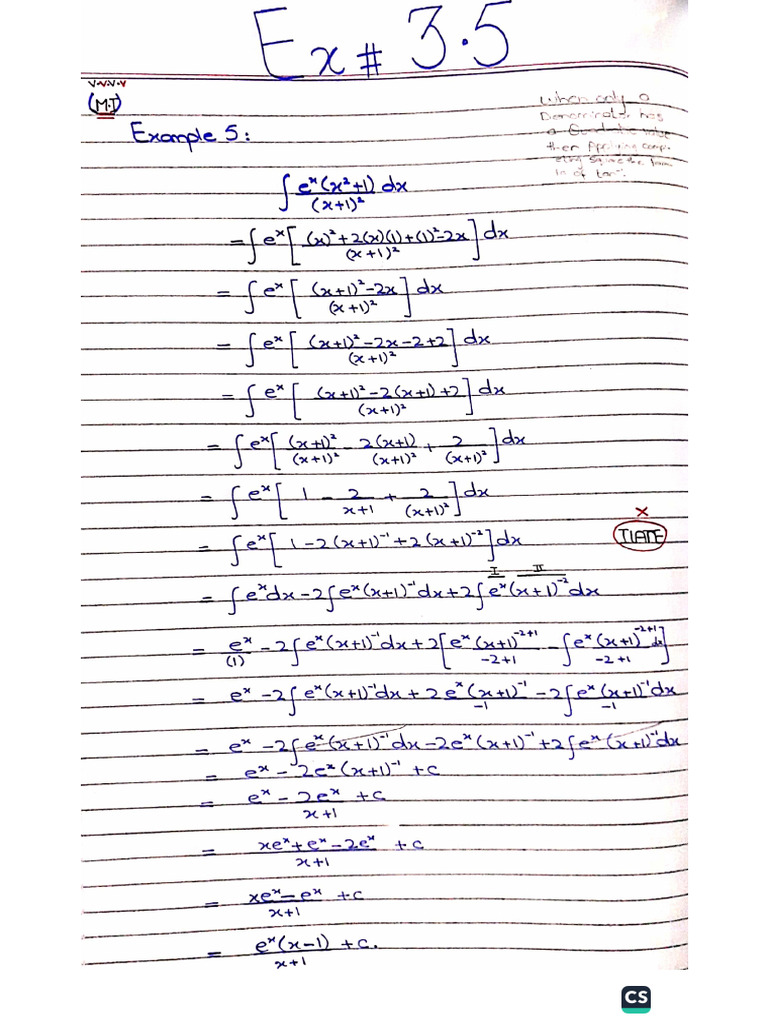 Ex # 3.5
V.V.V.V
(M.I)
When only a
Denominator has
a Quadratic value
then Applying compl-
eting Square the form
in of tan⁻¹
Example 5:
∫ eˣ(x²+1) dx / (x+1)²
= ∫ eˣ [ ((x)²+2(x)(1)+(1)²-2x) / (x+1)² ] dx
= ∫ eˣ [ ((x+1)²-2x) / (x+1)² ] dx
= ∫ eˣ [ ((x+1)²-2x-2+2) / (x+1)² ] dx
= ∫ eˣ [ ((x+1)²-2(x+1)+2) / (x+1)² ] dx
= ∫ eˣ [ (x+1)²/(x+1)² - 2(x+1)/(x+1)² + 2/(x+1)² ] dx
= ∫ eˣ [ 1 - 2/(x+1) + 2/(x+1)² ] dx
X
= ∫ eˣ [ 1-2(x+1)⁻¹+2(x+1)⁻² ] dx
ILATE
I II
= ∫ eˣdx - 2∫ eˣ(x+1)⁻¹dx + 2∫ eˣ(x+1)⁻²dx
= eˣ/(1) - 2∫ eˣ(x+1)⁻¹dx + 2[ eˣ(x+1)⁻²⁺¹/(-2+1) - ∫ eˣ(x+1)⁻²⁺¹/(-2+1) dx ]
= eˣ - 2∫ eˣ(x+1)⁻¹dx + 2eˣ(x+1)⁻¹/-1 - 2∫ eˣ(x+1)⁻¹/-1 dx
= eˣ - 2∫ eˣ(x+1)⁻¹dx - 2eˣ(x+1)⁻¹ + 2∫ eˣ(x+1)⁻¹dx
= eˣ - 2eˣ(x+1)⁻¹ + c
= eˣ - 2eˣ/(x+1) + c
= (xeˣ+eˣ-2eˣ)/(x+1) + c
= (xeˣ-eˣ)/(x+1) + c
= eˣ(x-1)/(x+1) + c.
CS